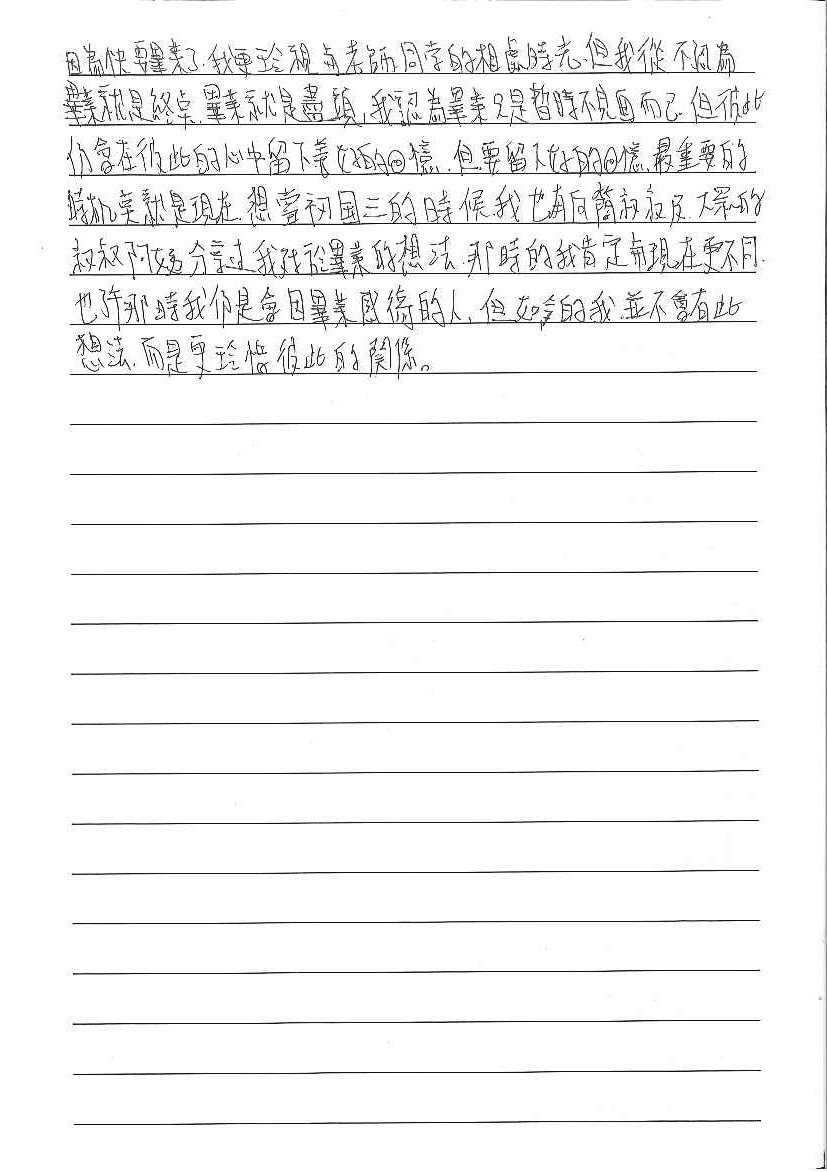 因為快要畢業了,我更珍視與老師同学的相處時光.但我從不認為
畢業就是終点.畢業就是盡頭,我認為畢業只是暫時不見面而已.但彼此
仍會在彼此的心中留下美好的回憶.但要留下好的回憶.最重要的
時机莫就是現在.想當初国三的時候.我也再向簡叔叔及大眾的
叔叔阿姨分享过我对於畢業的想法.那時的我肯定与現在更不同.
也許那時我仍是會因畢業感傷的人,但如今的我.並不會有此
想法.而是更珍惜彼此的関係。